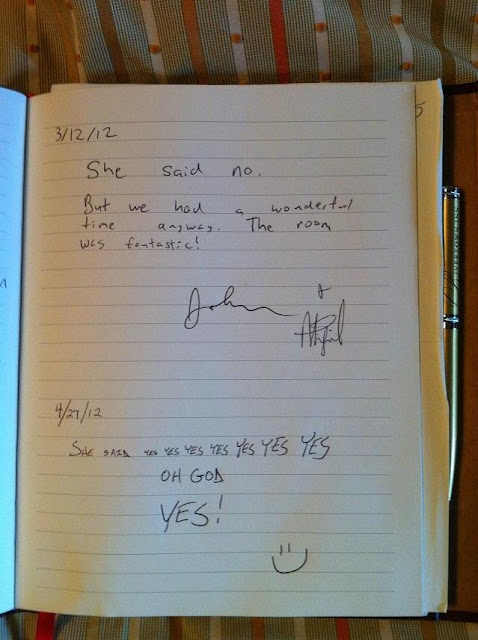 3/12/12
She said no.
But we had a wonderful
time anyway. The room
was fantastic!
John +
4/27/12
SHE SAID YES YES YES YES YES YES YES
OH GOD
YES!